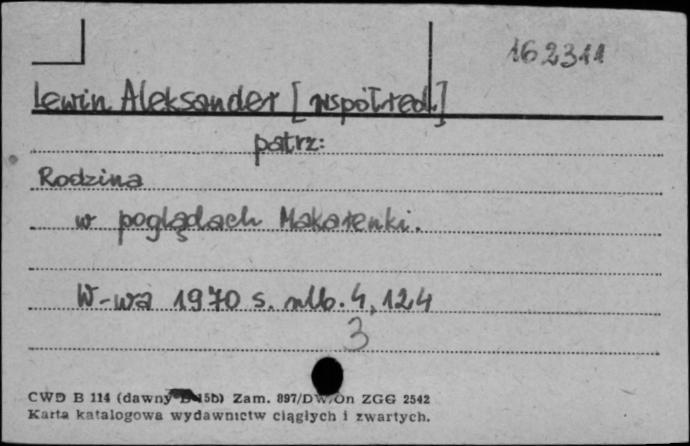 162311
Lewin Aleksander [współred.]
patrz:
Rodzina
w poglądach Makarenki.
W-wa 1970 s. nlb. 4, 124
3
CWD B 114 (dawny B 15b) Zam. 897/DW/On ZGG 2542
Karta katalogowa wydawnictw ciągłych i zwartych.